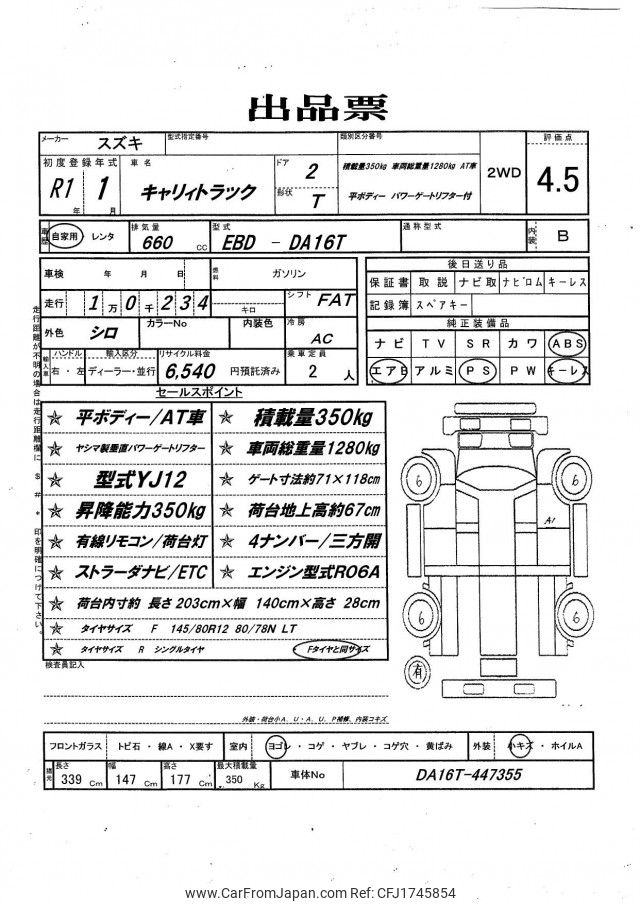 出品票
メーカー スズキ 型式指定番号 類別区分番号 評価点
初度登録年式 車名 ドア 2 積載量350kg 車両総重量1280kg AT車 2WD 4.5
R1 年 1 月 キャリィトラック 形状 T 平ボディー パワーゲートリフター付
車歴 自家用 レンタ 排気量 660 cc 型式 EBD - DA16T 通称型式 内装 B
車検 年 月 日 燃料 ガソリン 後日送り品
走行 1万0千234 キロ シフト FAT 保証書 取説 ナビ取 ナビロム キーレス
記録簿 スペアキー
外色 シロ カラーNo 内装色 冷房 AC 純正装備品
ナビ TV SR カワ ABS
輸入車 ハンドル 右・左 輸入区分 ディーラー・並行 リサイクル料金 6,540 円預託済み 乗車定員 2 人 エアB アルミ PS PW キーレス
走行距離が不明の場合は走行距離欄に $ # * 印を明確につけて下さい。
セールスポイント
☆ 平ボディー/AT車 ☆ 積載量350kg
☆ ヤシマ製垂直パワーゲートリフター ☆ 車両総重量1280kg
☆ 型式YJ12 ☆ ゲート寸法約71×118cm
☆ 昇降能力350kg ☆ 荷台地上高約67cm
☆ 有線リモコン/荷台灯 ☆ 4ナンバー/三方開
☆ ストラーダナビ/ETC ☆ エンジン型式R06A
☆ 荷台内寸約 長さ203cm×幅 140cm×高さ 28cm
☆ タイヤサイズ F 145/80R12 80/78N LT
☆ タイヤサイズ R シングルタイヤ Fタイヤと同サイズ
6 6
A1
6 6
有
検査員記入
外装・荷台小A、U・A、U、P補修、内装コキズ
フロントガラス トビ石・線A・X要す 室内 ヨゴレ・コゲ・ヤブレ・コゲ穴・黄ばみ 外装 小キズ・ホイルA
諸元 長さ 339 Cm 幅 147 Cm 高さ 177 Cm 最大積載量 350 Kg 車体No DA16T-447355
www.CarFromJapan.com Ref: CFJ1745854